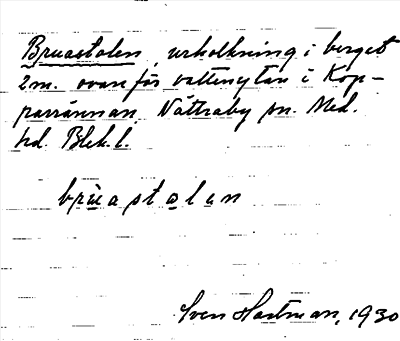 Bruastolen, urholkning i berget
2m. ovanför vattenytan i Kop-
parrännan, Nättraby sn. Med.
hd. Blek. l.
brùastolen
Sven Hartman, 1930